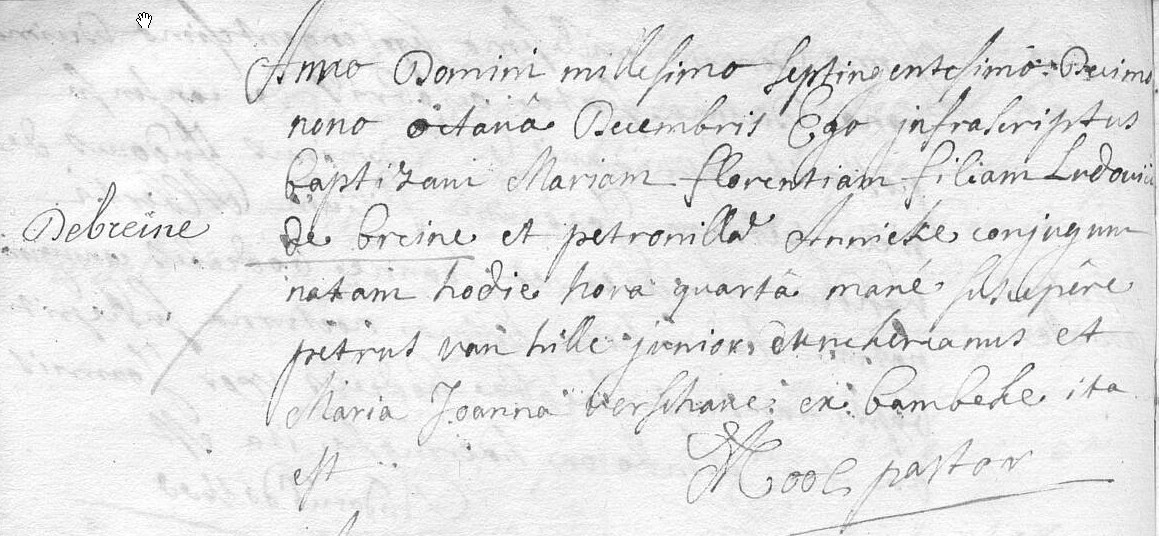 Anno Domini millesimo septingentesimo Decimo
nono octavâ Decembris Ego infrascriptus
baptizavi Mariam florentiam filiam Ludovici
Debreine
de breine et petronillae Annieke conjugum
natam hodie hora quartâ mané suscepêre
petrus van hille junior dunckercanus et
Maria Joanna verschave ex bambeke ita
est
pastor